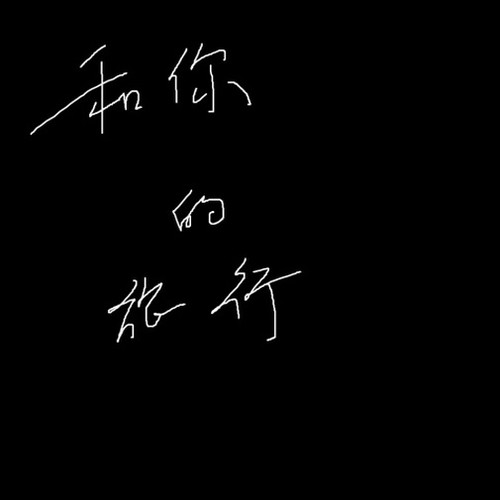 和你
的
旅行